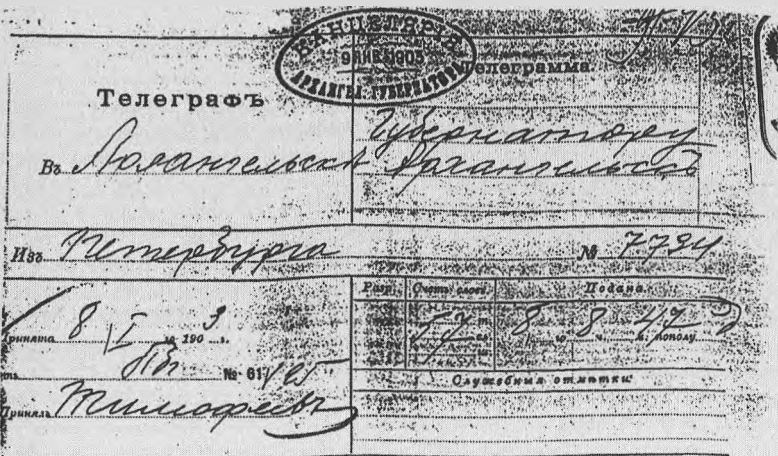 КАНЦЕЛЯРІЯ
9 ЯНВ 1903
АРХАНГЕЛ. ГУБЕРНАТОРА
Телеграфъ
Телеграмма
Губернатору
Въ Архангельскъ Архангельскъ
Изъ Петербурга № 7724
Разр. Счетъ словъ. Подана
57 8 8 ч. 47 м. пополу
Принята 8/I 190 3 г.
№ 61
Служебныя отмѣтки
Принялъ Тимофеевъ